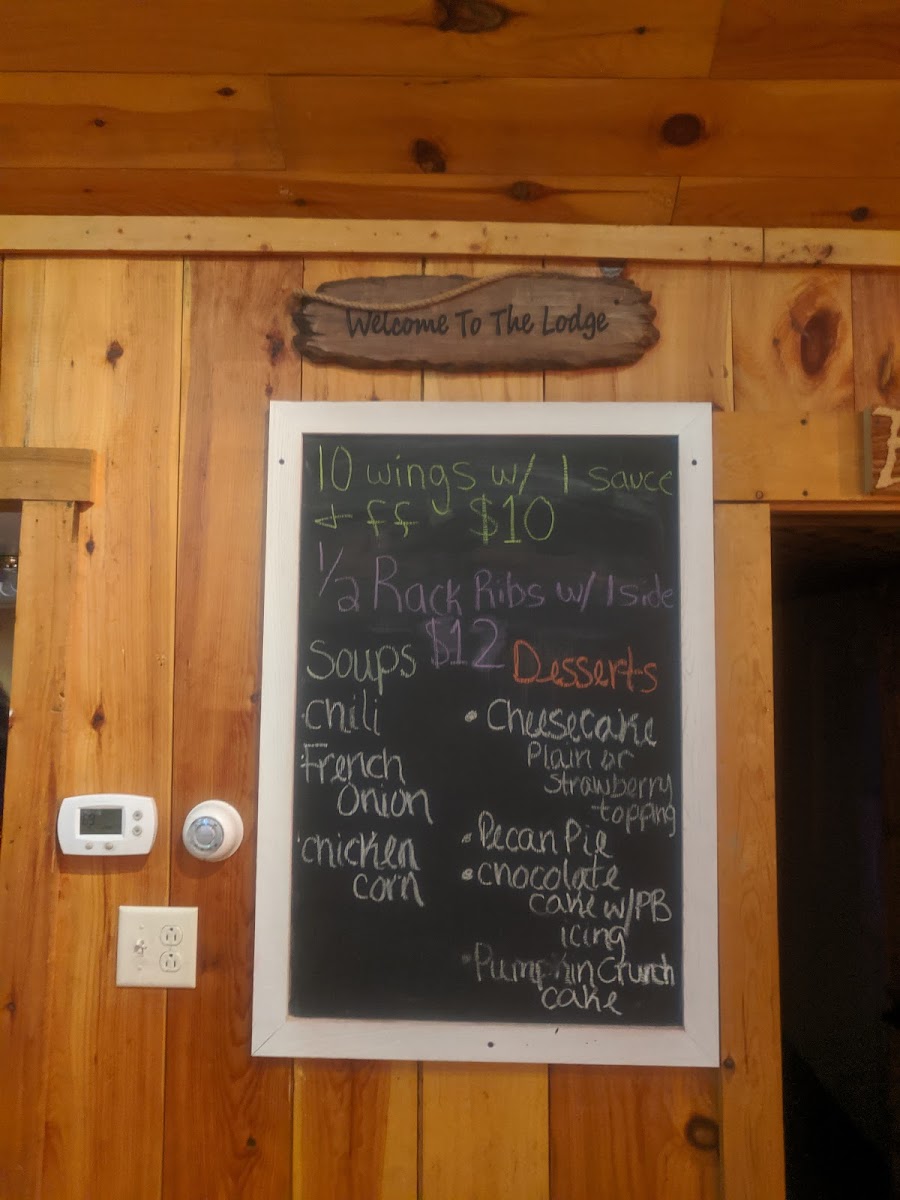 Welcome To The Lodge
10 wings w/ 1 sauce
+ ff $10
1/2 Rack Ribs w/ 1 side
$12
Soups
· Chili
· French
Onion
· chicken
corn
Desserts
• Cheesecake
Plain or
Strawberry
topping
• Pecan Pie
• chocolate
cake w/PB
icing
• Pumpkin Crunch
cake